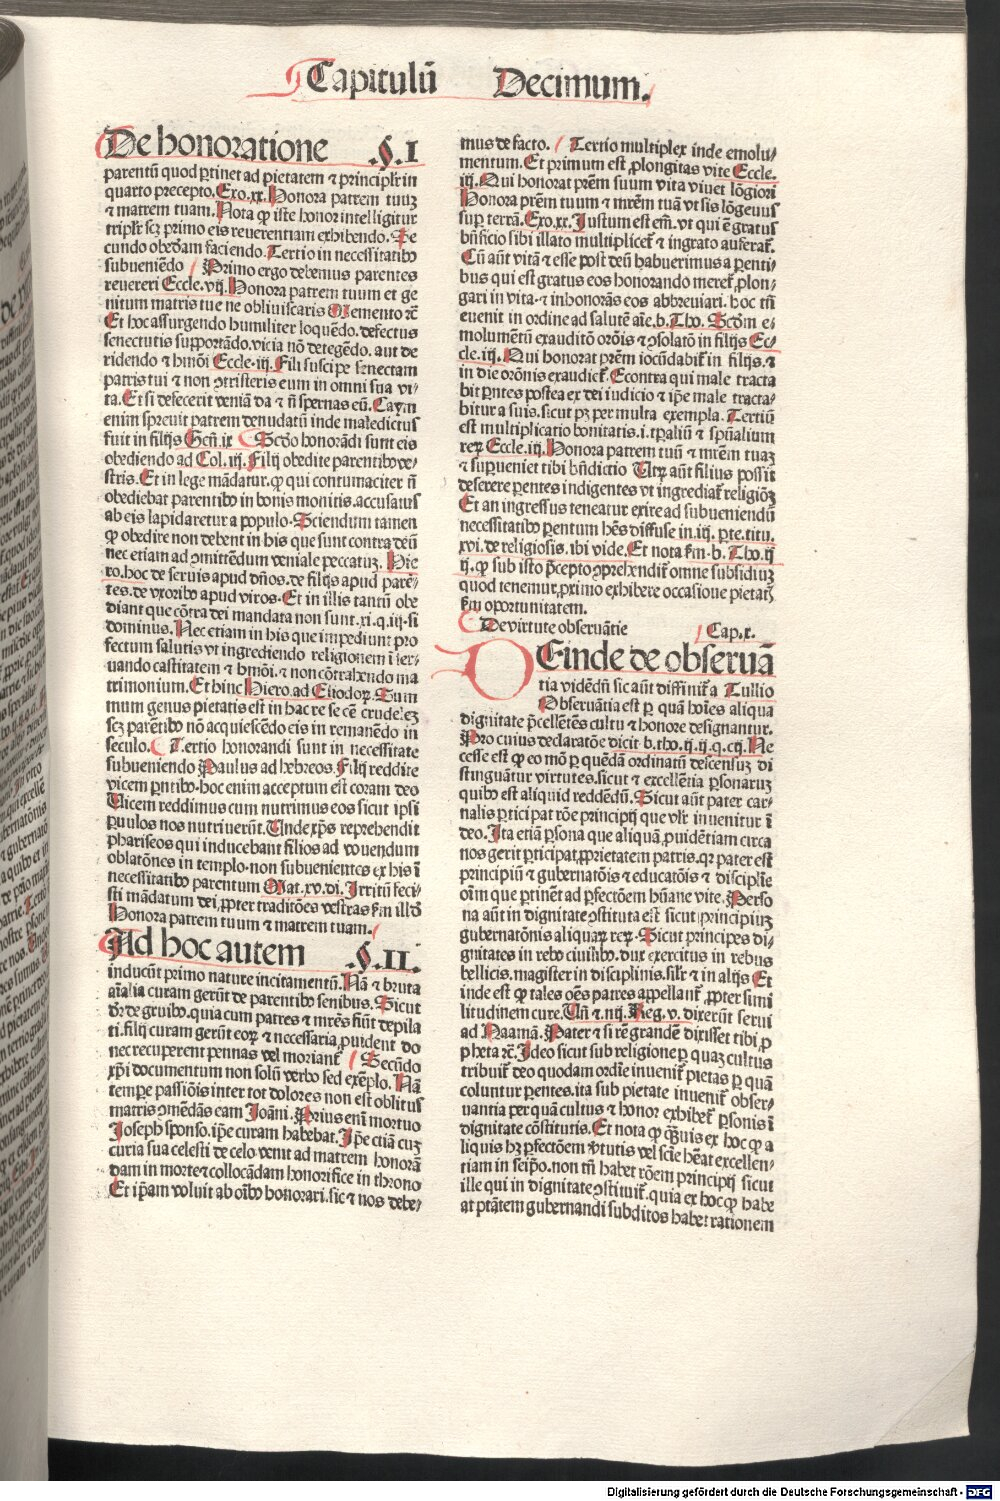 Capitulū Decimum.
De honoratione .§.I
parentū quod ꝑtinet ad pietatem ⁊ principlr̄ in
quarto precepto. Exo.xx. Honora patrem tuuꝫ
⁊ matrem tuam. Nota ꝙ iste honor intelligitur
triplr̄ scꝫ primo eis reuerentiam exhibendo. Se
cundo obediam faciendo. Tertio in necessitatibꝰ
subueniēdo Primo ergo debemus parentes
reuereri Eccle.vij. Honora patrem tuum et ge
nitum matris tue ne obliuiscaris Memento ⁊c̄
Et hoc assurgendo humiliter loquēdo. defectus
senectutis supportādo. vicia nō detegēdo. aut de
ridendo ⁊ hmōi Eccle.iij. Fili suscipe senectam
patris tui ⁊ non ꝯtristeris eum in omni sua vi-
ta. Et si defecerit veniā da ⁊ n̄ spernas eū. Caym
enim spreuit patrem denudatū inde maledictus
fuit in filijs Geñ.ix Scd̄o honorādi sunt eis
obediendo ad Col.iij. Filij obedite parentibꝰ ve-
stris. Et in lege mādatur. ꝙ qui contumaciter n̄
obediebat parentibꝰ in bonis monitis. accusatus
ab eis lapidaretur a populo. Sciendum tamen
ꝙ obedire non debent in his que sunt contra deū
nec etiam ad ꝯmittēdum veniale peccatuꝫ. Hie
ro. hoc de seruis apud dn̄os. de filijs apud parē-
tes. de vxoribꝰ apud viros. Et in illis tantū obe
diant que cōtra dei mandata non sunt. xi.q.iij. si
dominus. Nec etiam in his que impediunt pro
fectum salutis vt ingrediendo religionem ī ser-
uando castitatem ⁊ hmōi. ⁊ non cōtrahendo ma
trimonium. Et hinc Hiero. ad Eliodoꝝ. Sum
mum genus pietatis est in hac re se cē crudeleꝫ
scꝫ parētibꝰ nō acquiescēdo eis in remanēdo in
seculo. Tertio honorandi sunt in necessitate
subueniendo Paulus ad hebreos. Filij reddite
vicem ꝑntibꝰ. hoc enim acceptum est coram deo
Vicem reddimus cum nutrimus eos sicut ipsi
ꝑuulos nos nutriuerūt. Unde xp̄s reprehendit
phariseos qui inducebant filios ad vouendum
oblatōnes in templo. non subuenientes ex his ī
necessitatibꝰ parentum Mat.xv.di. Irritū feci-
sti mādatum dei, ꝓpter traditōes vestras ẜm illd̄
Honora patrem tuum ⁊ matrem tuam.
Ad hoc autem .§.II.
inducūt primo nature incitamentū. Nā ⁊ bruta
aīalia curam gerūt de parentibꝰ senibus. Sicut
dr̄ de gruibꝰ. quia cum patres ⁊ mr̄es fiūt depila
ti. filij curam gerūt eoꝝ ⁊ necessaria ꝓuident do
nec recuperent pennas vel moriant̄ Secūdo
xp̄i documentum non solū verbo sed exēplo. Nā
tempe passiōis inter tot dolores non est oblitus
matris ꝯmēdās eam Joāni. Prius enī mortuo
Joseph sponso. ip̄e curam habebat. Ip̄e etiā cuꝫ
curia sua celesti de celo venit ad matrem honorā
dam in morte ⁊ collocādam honorifice in throno
Et ip̄am voluit ab oībꝰ honorari. sic ⁊ nos debe-
mus de facto. Tertio multiplex inde emolu-
mentum. Et primum est ꝓlongitas vite Eccle.
iij. Qui honorat pr̄em suum vita viuet lōgiori
Honora pr̄em tuum ⁊ mr̄em tuā vt sis lōgeuus
suꝑ terrā. Exo.xx. Justum est em̄. vt qui ē gratus
bn̄ficio sibi illato multiplicet̄ ⁊ ingrato auferat̄.
Cū aūt vitā ⁊ esse post deū habuerimus a ꝑenti-
bus qui est gratus eos honorando meret̄ ꝓlon-
gari in vita. ⁊ inhonorās eos abbreuiari. hoc tn̄
euenit in ordine ad salutē aīe. b. Tho. Scd̄m e-
molumētū exauditō orōis ⁊ ꝯsolatō in filijs Ec-
cle.iij. Qui honorat pr̄em iocūdabit̄ in filijs. ⁊
in die orōnis exaudiet̄. Econtra qui male tracta
bit ꝑntes postea ex dei iudicio ⁊ ip̄e male tracta-
bitur a suis. sicut pꝫ per multa exempla. Tertiū
est multiplicatio bonitatis. i. tꝑaliū ⁊ spūalium
reꝝ Eccle.iij. Honora patrem tuū ⁊ mr̄em tuaꝫ
⁊ suꝑueniet tibi bn̄dictio Utꝝ aūt filius possit
deserere ꝑentes indigentes vt ingrediat̄ religiōꝫ
Et an ingressus teneatur exire ad subueniendū
necessitatibꝰ ꝑentum hēs diffuse in .iij. ꝑte. titu.
xvi. de religiosis. ibi vide. Et nota ẜm .b. Tho. ij
ij. ꝙ sub isto p̄cepto ꝯprehendit̄ omne subsidiuꝫ
quod tenemur, ꝓximo exhibere occasione pietatꝭ
ẜm oportunitatem.
De virtute obseruātie Cap.x.
Deinde de obseruā
tia vidēdū sic aūt diffinit̄ a Tullio
Obseruātia est ꝑ quā hoīes aliqua
dignitate p̄cellētēs cultu ⁊ honore designantur.
Pro cuius declaratōe dicit b. tho. ij. ij. q. cij. Ne
cesse est ꝙ eo mō ꝑ quēdā ordinatū descensuꝫ di
stinguātur virtutes. sicut ⁊ excellētia ꝑsonaruꝫ
quibꝰ est aliquid reddēdū. Sicut aūt pater car-
nalis ꝑticipat rōe principij que vlr̄ inuenitur ī
deo. Ita etiā ꝑsona que aliquā ꝓuidētiam circa
nos gerit ꝑticipat ꝓprietatem patris. qr̄ pater est
principiū ⁊ gubernatōis ⁊ educatōis ⁊ discipline
oīm que ꝑtinēt ad ꝑfectōem hn̄ane vite. Perso
na aūt in dignitate ꝯstituta est sicut principiuꝫ
gubernatōnis aliquaꝝ reꝝ. Sicut princeps di-
gnitates in rebꝰ ciuilibꝰ. dux exercitus in rebus
bellicis. magister in disciplinis. silr̄ ⁊ in alijs Et
inde est ꝙ tales oēs patres appellant̄ ꝓpter simi
litudinem cure. Un̄ ⁊ .iiij. Reg.v. dixerūt serui
ad Naamā. Pater ⁊ si rē grandē dixisset tibi, ꝓ
pheta ⁊c̄. Ideo sicut sub religione ꝑ quaꝫ cultus
tribuit̄ deo quodam ordīe inuenit̄ pietas ꝑ quā
coluntur ꝑentes. ita sub pietate inuenit̄ obser-
uantia per quā cultus ⁊ honor exhibet̄ ꝑsonis ī
dignitate cōstitutis. Et nota ꝙ qͣuis ex hoc ꝙ a
liquis hꝫ ꝑfectōem v̄tutis vel scīe hēat excellen-
tiam in seip̄o. non tn̄ habet rōem principij sicut
ille qui in dignitate ꝯstituit̄. quia ex hoc ꝙ habe
at ptātem gubernandi subditos habet rationem
Digitalisierung gefördert durch die Deutsche Forschungsgemeinschaft - DFG